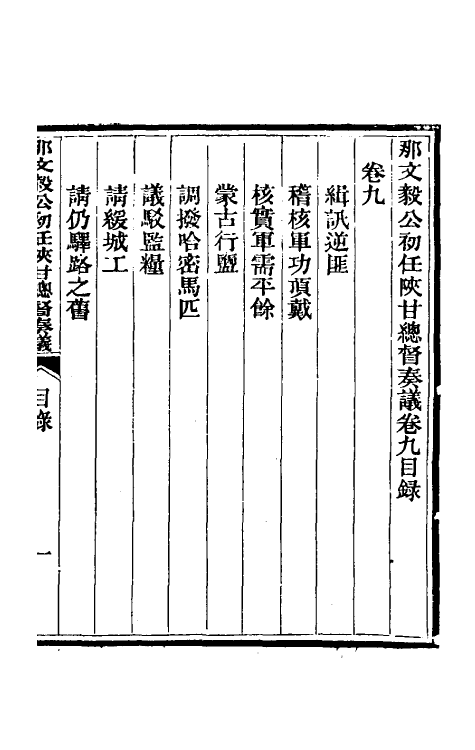 那文毅公初任陜甘總督奏議卷九目録
卷九
緝訊逆匪
稽核軍功頂戴
核實軍需平餘
蒙古行鹽
調撥哈密馬匹
議駁監糧
請緩城工
請仍驛路之舊
那文毅公初任陜甘總督奏議
目錄
一